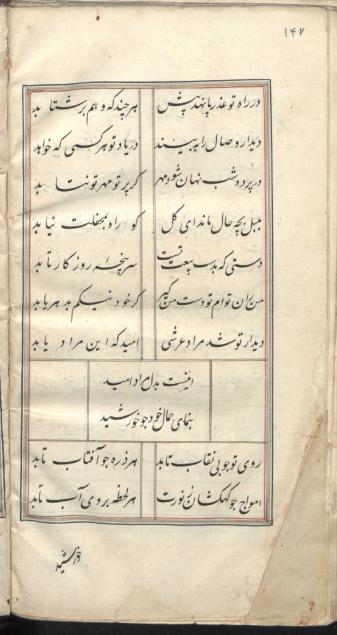 ۱۴۷
در راه تو عذر پا نهد پیش هر چند که وهم بر شتابد
دیدار وصال را نه بیند در یاد تو هر کسی که خوابد
در پرده شب نهان شود مهر گر پرتو مهر تو نتابد
بلبل بچه حال ماند ای گل کو راه بمحفلت نیابد
دستی که بدست بیعت تست سرپنجه روزگار تابد
من زان توام تو دست من گیر گر خود نیکم بد هر یابد
دیدار تو شد مراد عرشی امید که این مراد یابد
اینست بدل مراد امید
بنمای جمال خود چو خورشید
روی تو چو بی نقاب تابد هر ذره چو آفتاب تابد
امواج چو کهکشان ز نورت هر لحظه بروی آب تابد
خورشید